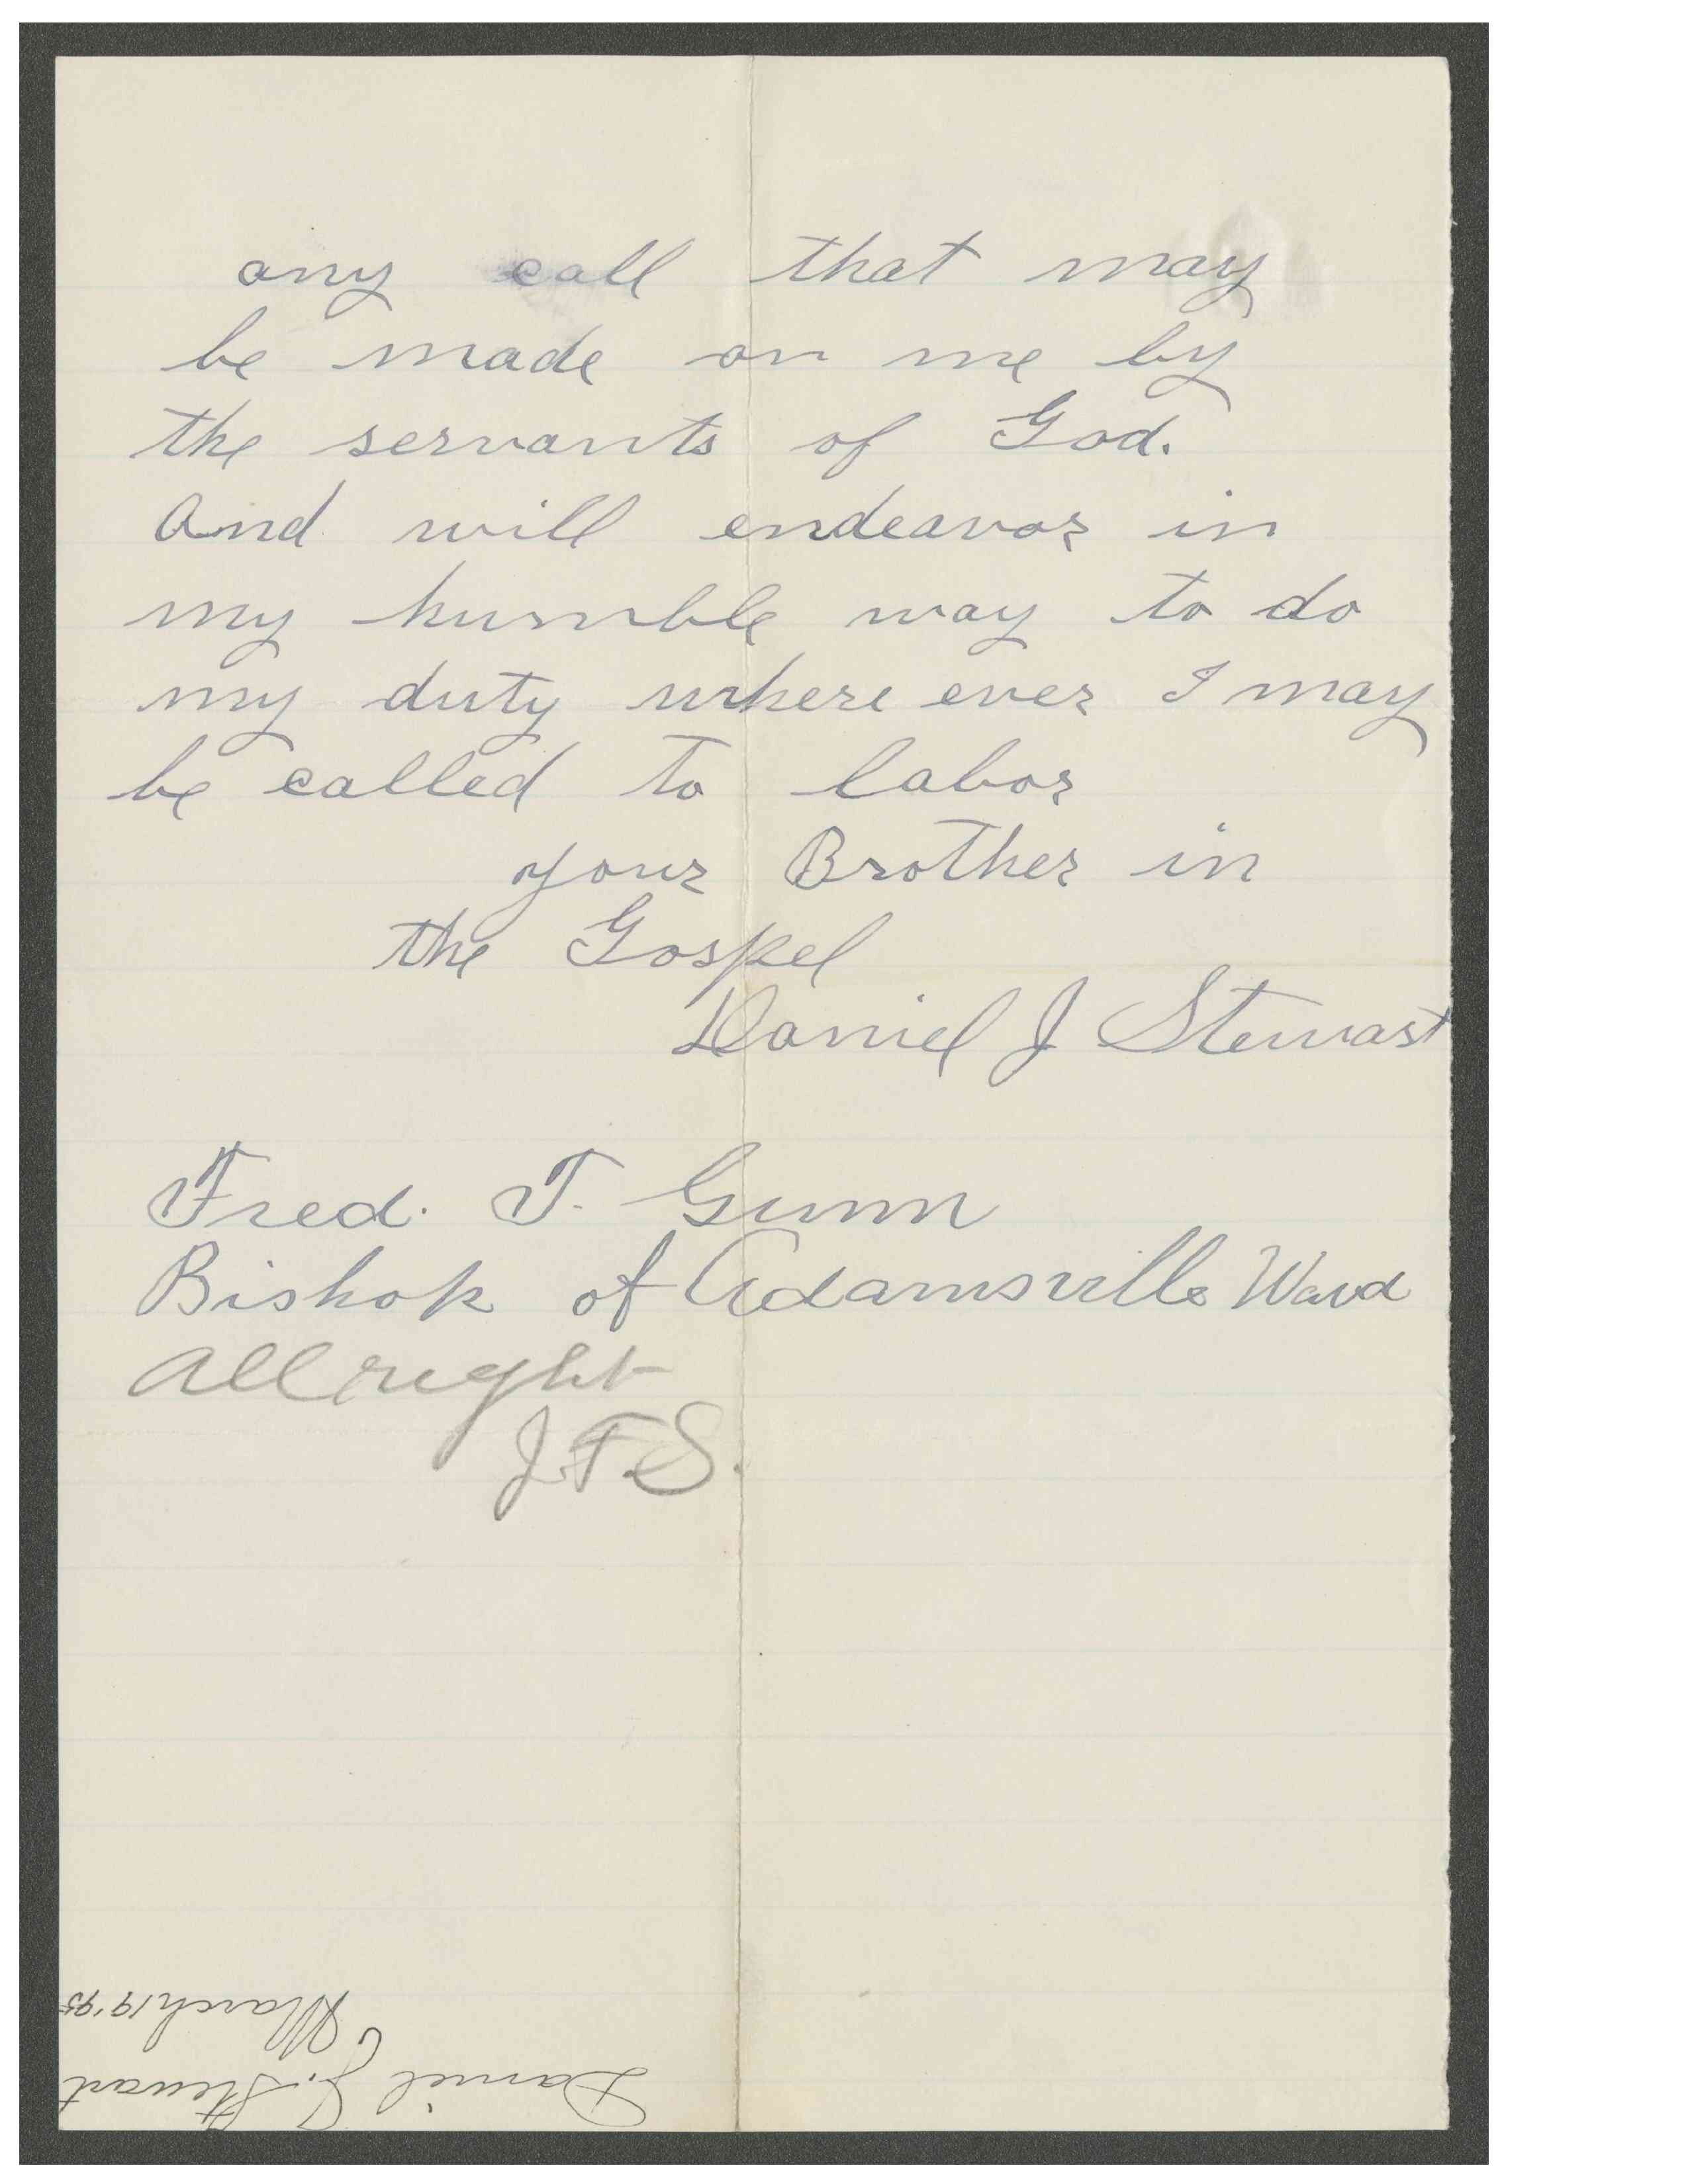 any call that may
be made on me by
the servants of God.
And will endeavor in
my humble way to do
my duty where ever I may
be called to labor
your Brother in
the Gospel
Daniel J Stewart
Fred. T. Gunn
Bishop of Adamsville Ward
All right
J.F.S.
Daniel J. Stewart
March 19 '95